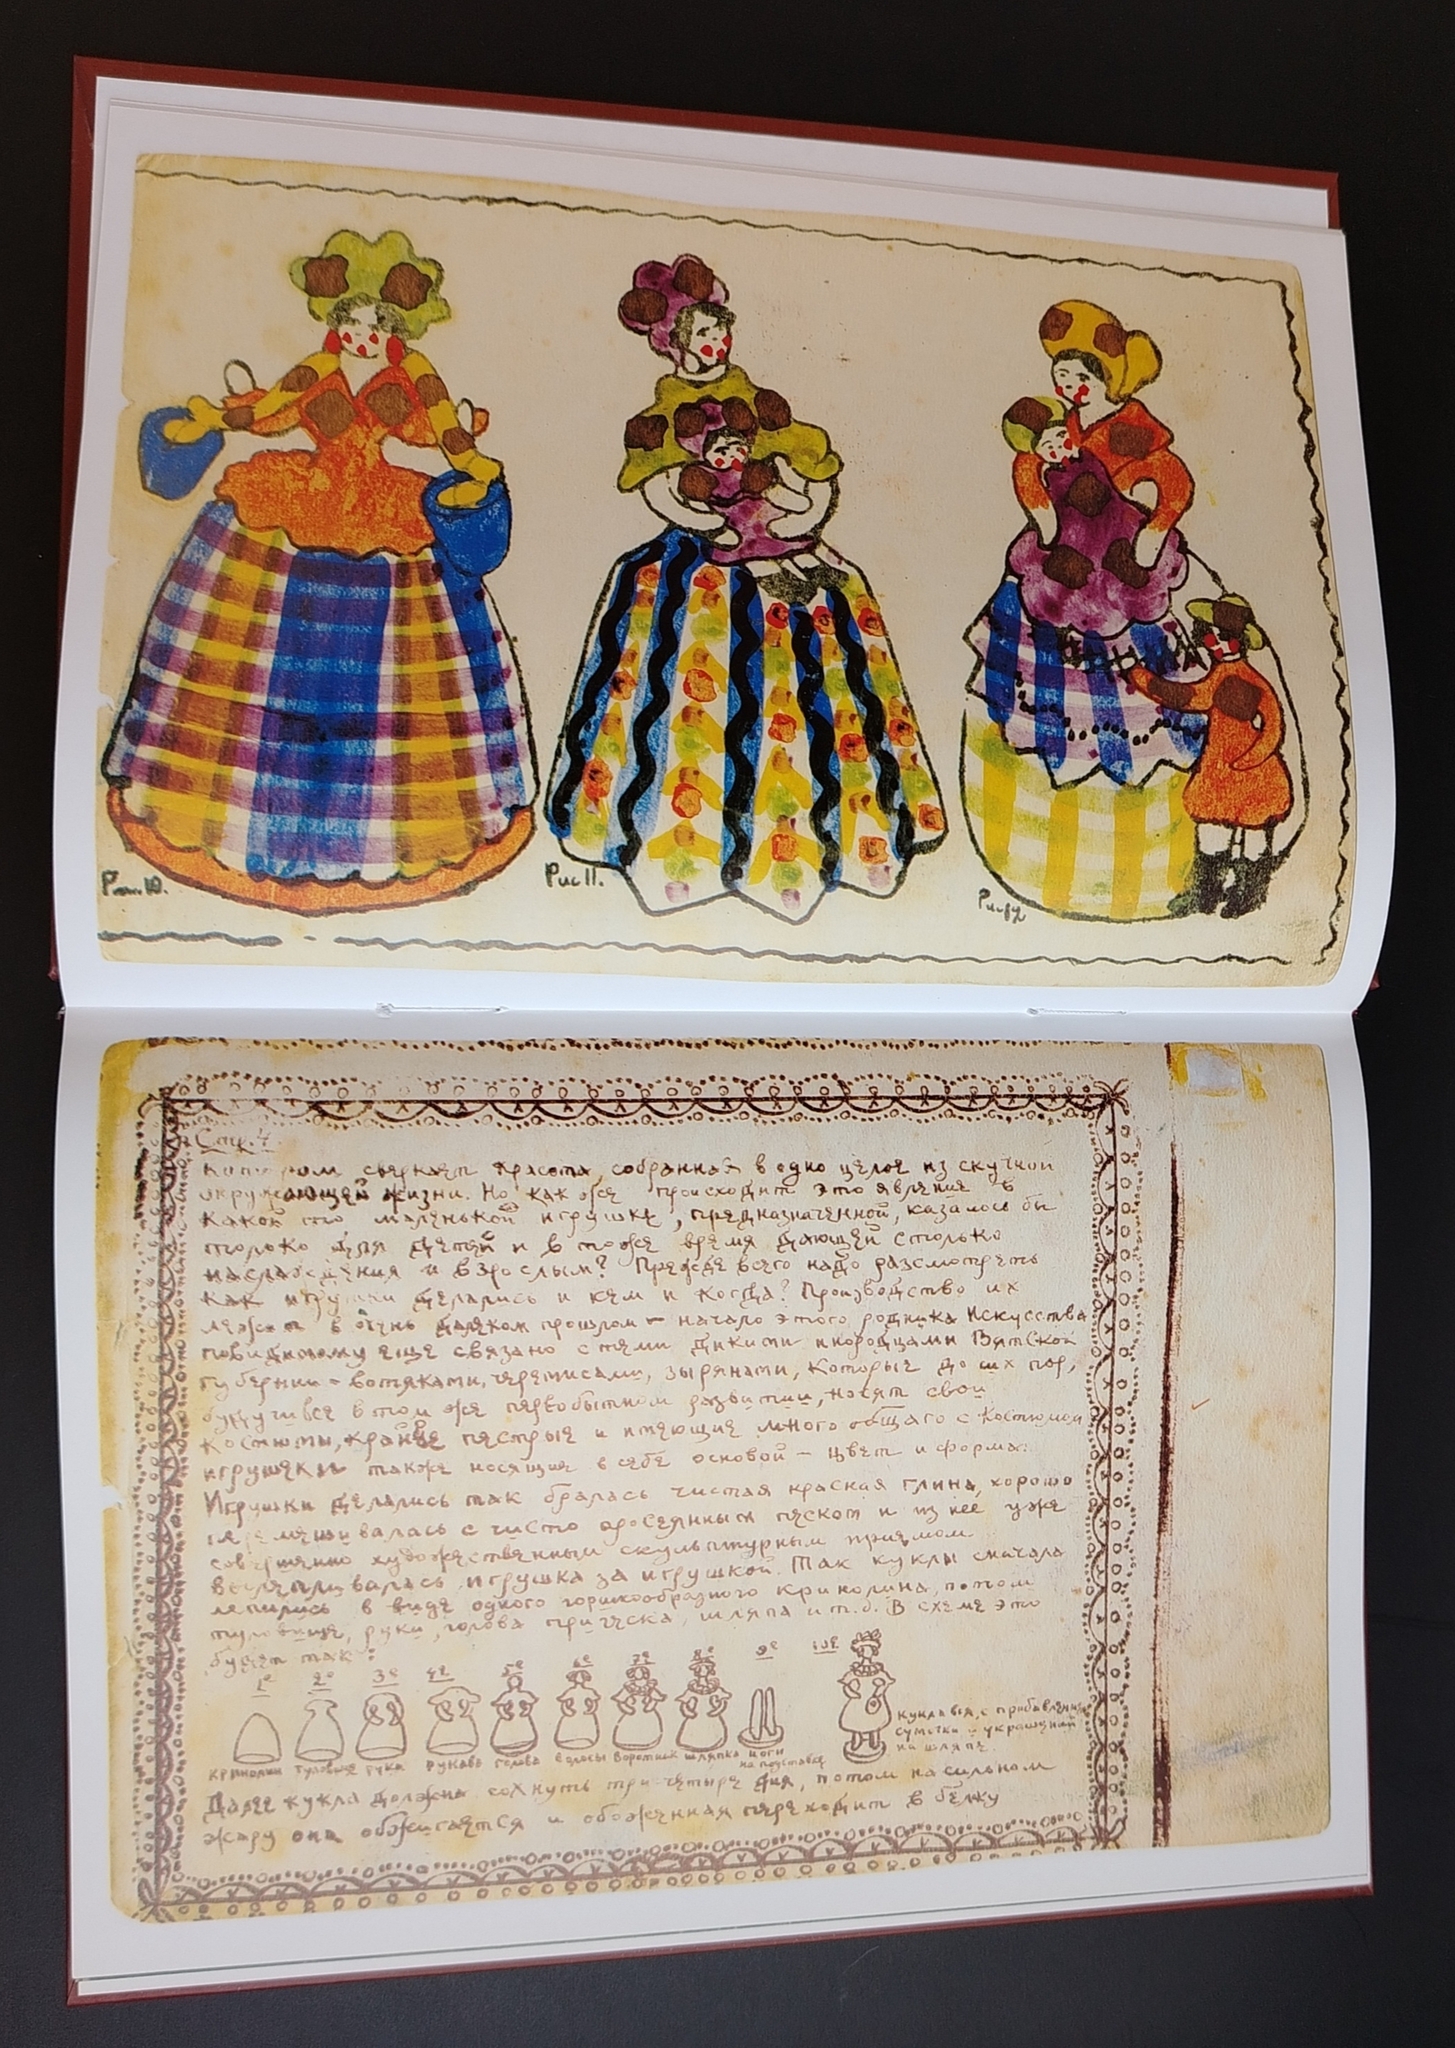 Рис. 10.
Рис 11.
Рис 12
Стр. 4.
сверкает красота, собранная в одно целое из скучной
окружающей жизни. Но как же происходит это явление в
какой то маленькой игрушке, предназначенной, казалось бы
только для детей и в тоже время дающей столько
наслаждения и взрослым? Прежде всего надо разсмотреть
как игрушки делались и кем и когда? Производство их
лежит в очень далеком прошлом – начало этого родника Искусства
повидимому еще связано с теми дикими инородцами Вятской
губернии – вотяками, черемисами, зырянами, которые до их пор,
будучи все в том же первобытном развитии, носят свои
костюмы, крайне пестрые и имеющие много общаго с костюмом
игрушки также носящие в себе основой – цвет и форма.
Игрушки делались так бралась чистая красная глина, хорошо
перемешивалась с чисто просеянным песком и из нее уже
совершенно художественным скульптурным приемом
вылепливалась игрушка за игрушкой. Так куклы сначала
лепились в виде одного горшкообразного кринолина, потом
туловище, руки, голова прическа, шляпа и т.д. В схеме это
будет так:
1е 2е 3е 4е 5е 6е 7е 8е 9е 10е
кринолин туловище рука рукава голова волосы воротник шляпка ноги на подставке
Кукла вся, с прибавлением
сумочки и украшений
на шляпе.
Далее кукла должна сохнуть три-четыре дня, потом на сильном
жару она обжигается и обоженная переходит в белку